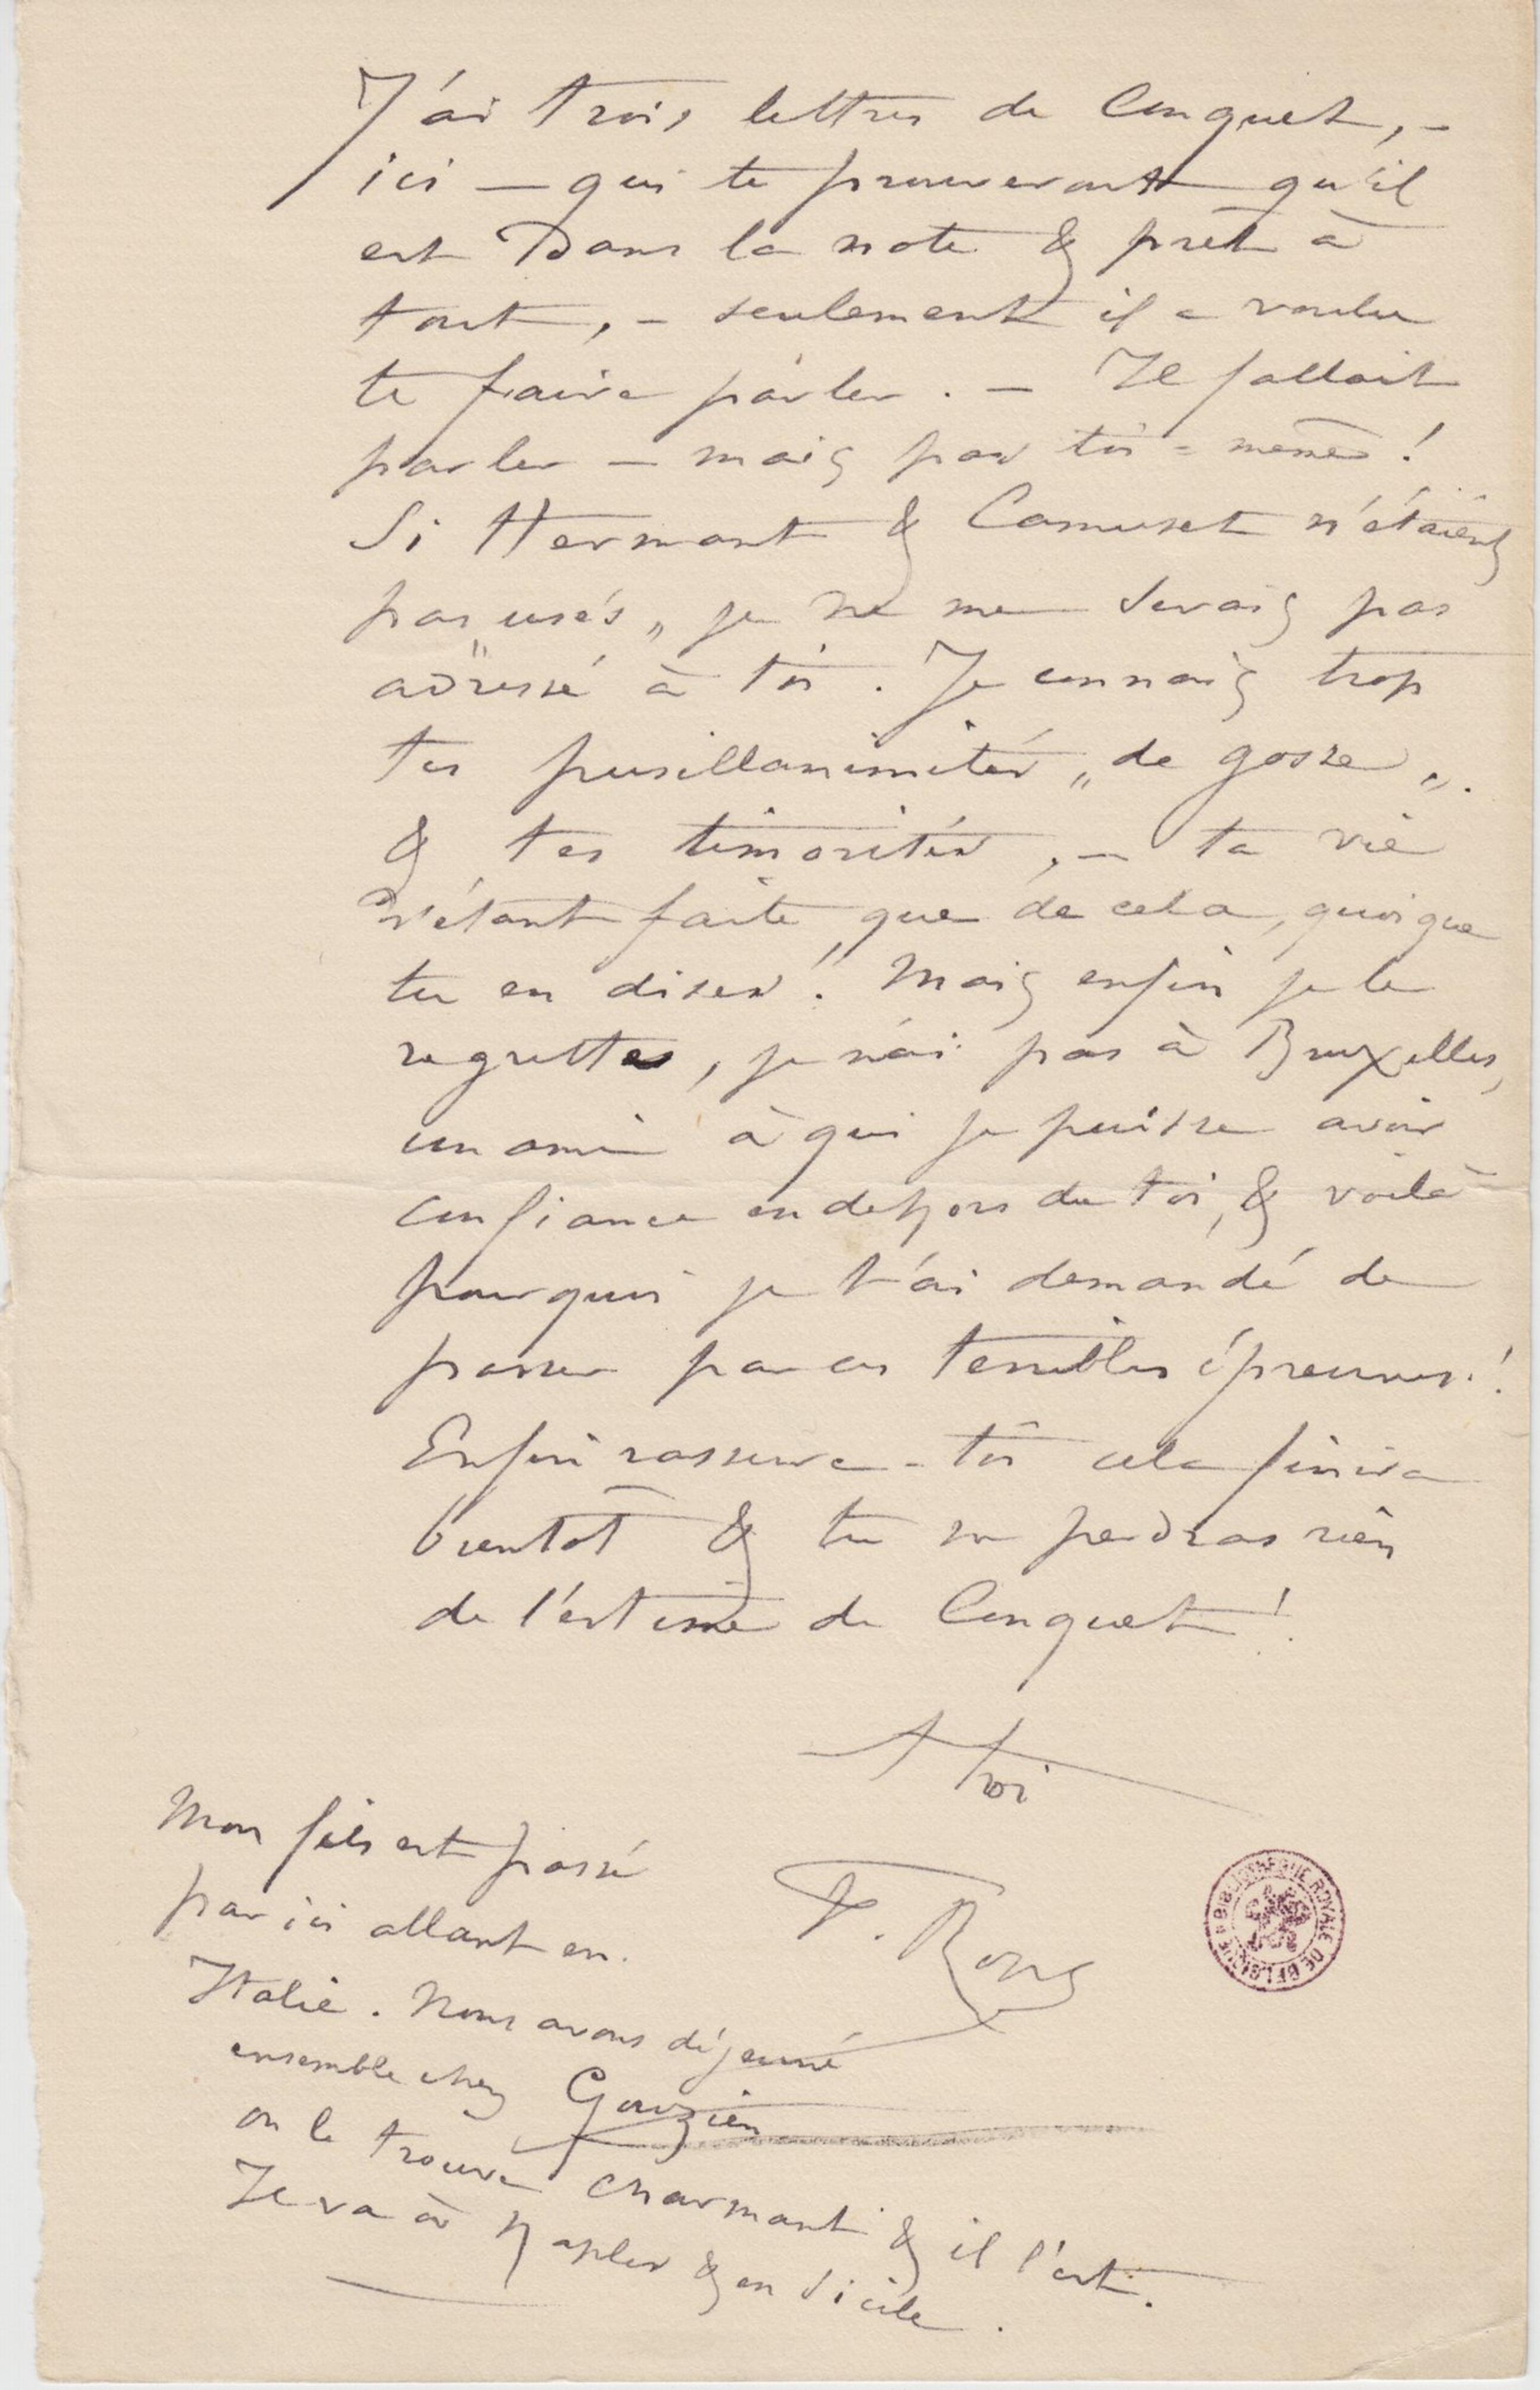 J'ai trois lettres de Conquet, –
ici – qui te prouveront qu'il
est dans la note & prêt à
tout, – seulement il a voulu
te faire parler. – Il fallait
parler – mais par toi-même!
Si Hermant & Camuset n'étaient
pas „usés„ je ne me serais pas
adressé à toi. Je connais trop
tes pusillanimités „de gosse„.
& tes timorités, – ta vie
n'étant faite que de cela, quoique
tu en dises! Mais enfin je le
regrette, je n'ai pas à Bruxelles,
un ami à qui je puisse avoir
confiance en dehors de toi, & voilà
pourquoi je t'ai demandé de
passer par ces terribles épreuves!
Enfin rassure-toi cela finira
bientôt & tu ne perdras rien
de l'estime de Conquet!
A toi
F. Rops
Mon fils est passé
par ici allant en
Italie. Nous avons déjeuné
ensemble chez Gouzien
on le trouve charmant & il l'est.
Il va à Naples & en Sicile.
BIBLIOTHÈQUE ROYALE DE BELGIQUE